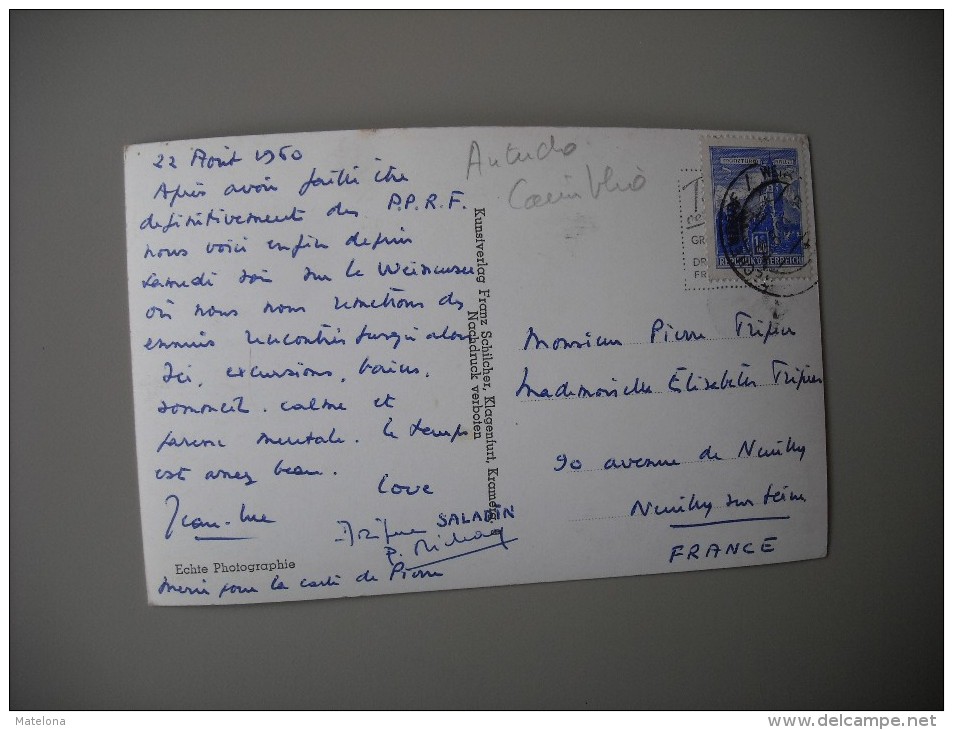 22 Août 1960
Après avoir failli être
définitivement des P.P.R.F.
nous voici enfin depuis
samedi soir sur le
où nous nous remettons des
ennuis rencontrés jusqu'alors
Ici, excursions, bains,
sommeil. calme et
paresse mentale. le temps
est assez beau.
Love
Jean-Luc
SALADIN
Echte Photographie
Merci pour la carte de Pierre
Kunstverlag Franz Schilcher, Klagenfurt, Kramerg.
Nachdruck verboten
REPUBLIK ÖSTERREICH
Monsieur Pierre Tripier
Mademoiselle Elisabeth Tripier
90 avenue de Neuilly
Neuilly sur Seine
FRANCE
Matelona
http://www.delcampe.net